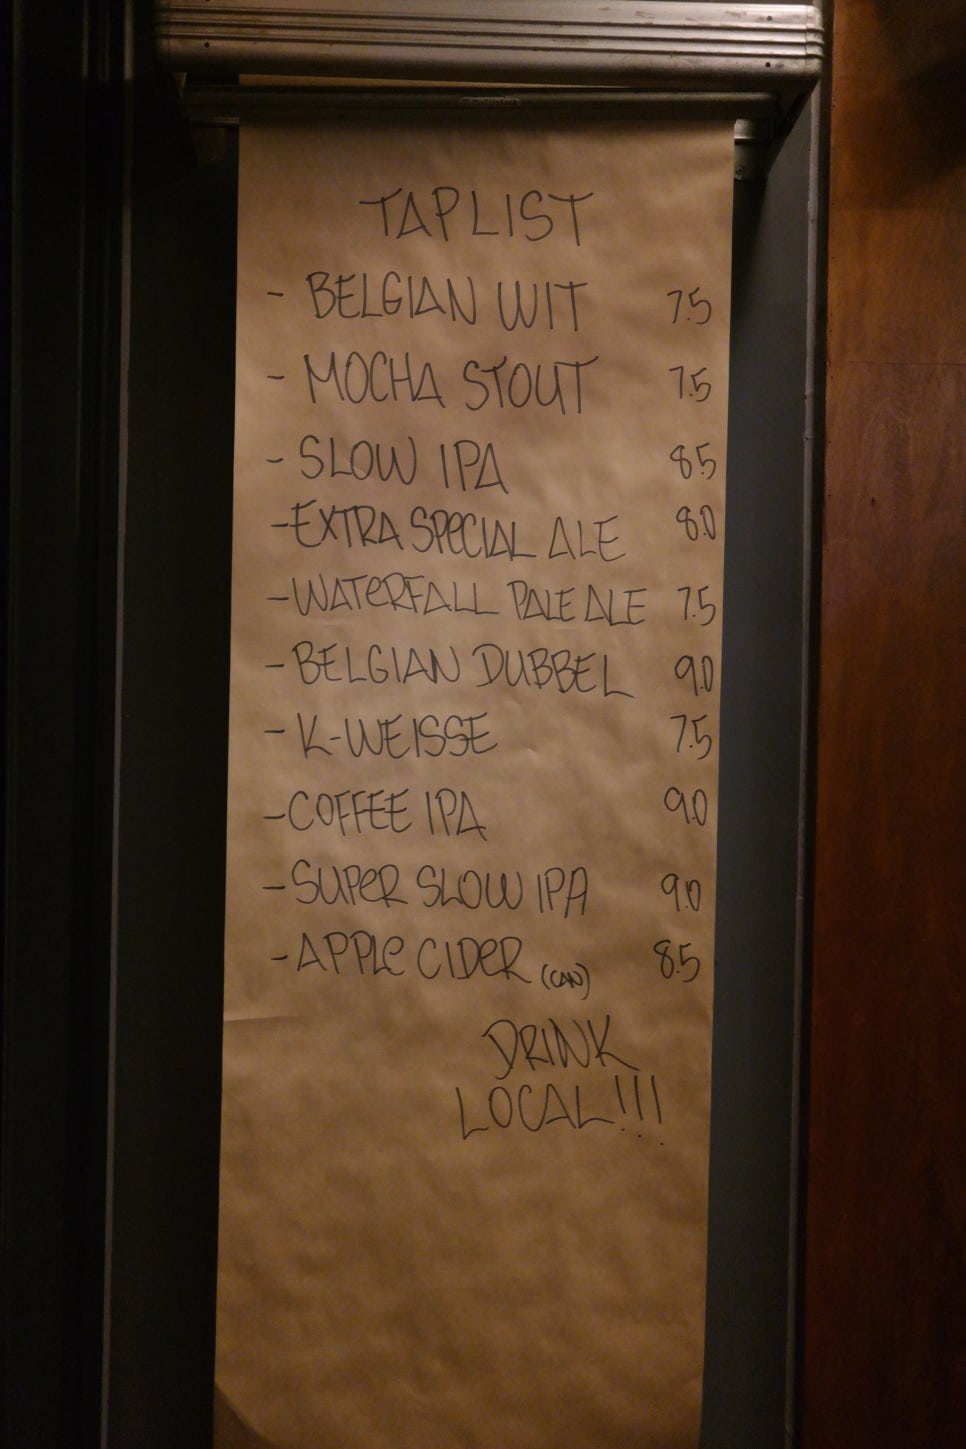 TAPLIST
- BELGIAN WIT 7.5
- MOCHA STOUT 7.5
- SLOW IPA 8.5
- EXTRA SPECIAL ALE 8.0
- WATERFALL PALE ALE 7.5
- BELGIAN DUBBEL 9.0
- K-WEISSE 7.5
- COFFEE IPA 9.0
- SUPER SLOW IPA 9.0
- APPLE CIDER (CAN) 8.5
DRINK
LOCAL!!!